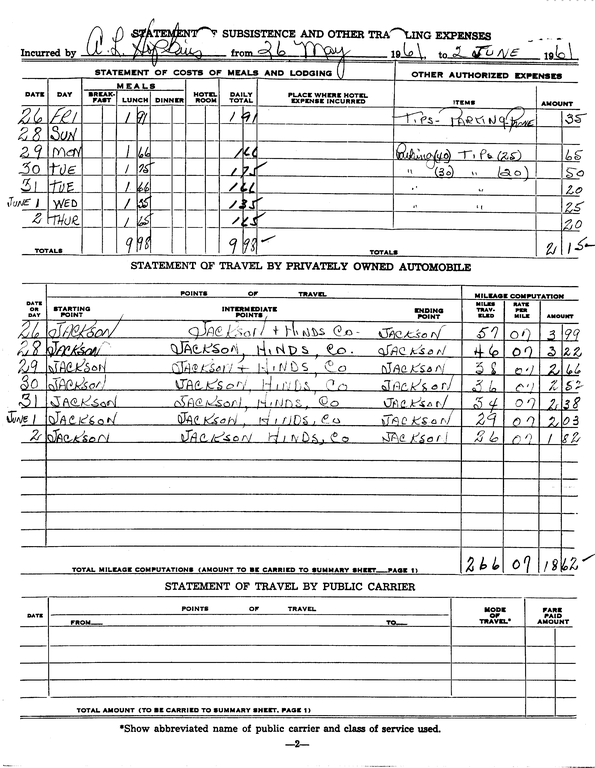 STATEMENT OF SUBSISTENCE AND OTHER TRAVELING EXPENSES
Incurred by A. L. Hopkins from 26 May 1961, to 2 JUNE 1961
STATEMENT OF COSTS OF MEALS AND LODGING OTHER AUTHORIZED EXPENSES
DATE DAY MEALS BREAK-FAST LUNCH DINNER HOTEL ROOM DAILY TOTAL PLACE WHERE HOTEL EXPENSE INCURRED ITEMS AMOUNT
26 FRI 1 91 1 91 TIPS - PARKING - PHONE 35
28 SUN
29 MON 1 66 1 66 Parking (40) TIPS (25) 65
30 TUE 1 75 1 75 " (30) " (20) 50
31 TUE 1 66 1 66 " " 20
JUNE 1 WED 1 35 1 35 " " 25
2 THUR 1 65 1 65 20
TOTALS 9 98 9 98 TOTALS 2 15
STATEMENT OF TRAVEL BY PRIVATELY OWNED AUTOMOBILE
DATE OR DAY POINTS OF TRAVEL MILEAGE COMPUTATION
STARTING POINT INTERMEDIATE POINTS ENDING POINT MILES TRAV-ELED RATE PER MILE AMOUNT
26 JACKSON JACKSON + HINDS CO. JACKSON 57 07 3 99
28 JACKSON JACKSON, HINDS, CO. JACKSON 46 07 3 22
29 JACKSON JACKSON + HINDS, CO JACKSON 38 07 2 66
30 JACKSON JACKSON, HINDS, CO JACKSON 36 07 2 52
31 JACKSON JACKSON, HINDS, CO JACKSON 34 07 2 38
JUNE 1 JACKSON JACKSON, HINDS, CO JACKSON 29 07 2 03
2 JACKSON JACKSON HINDS, CO JACKSON 26 07 1 82
TOTAL MILEAGE COMPUTATIONS (AMOUNT TO BE CARRIED TO SUMMARY SHEET PAGE 1) 266 07 18 62
STATEMENT OF TRAVEL BY PUBLIC CARRIER
DATE POINTS OF TRAVEL MODE OF TRAVEL* FARE PAID AMOUNT
FROM TO
TOTAL AMOUNT (TO BE CARRIED TO SUMMARY SHEET. PAGE 1)
*Show abbreviated name of public carrier and class of service used.
—2—